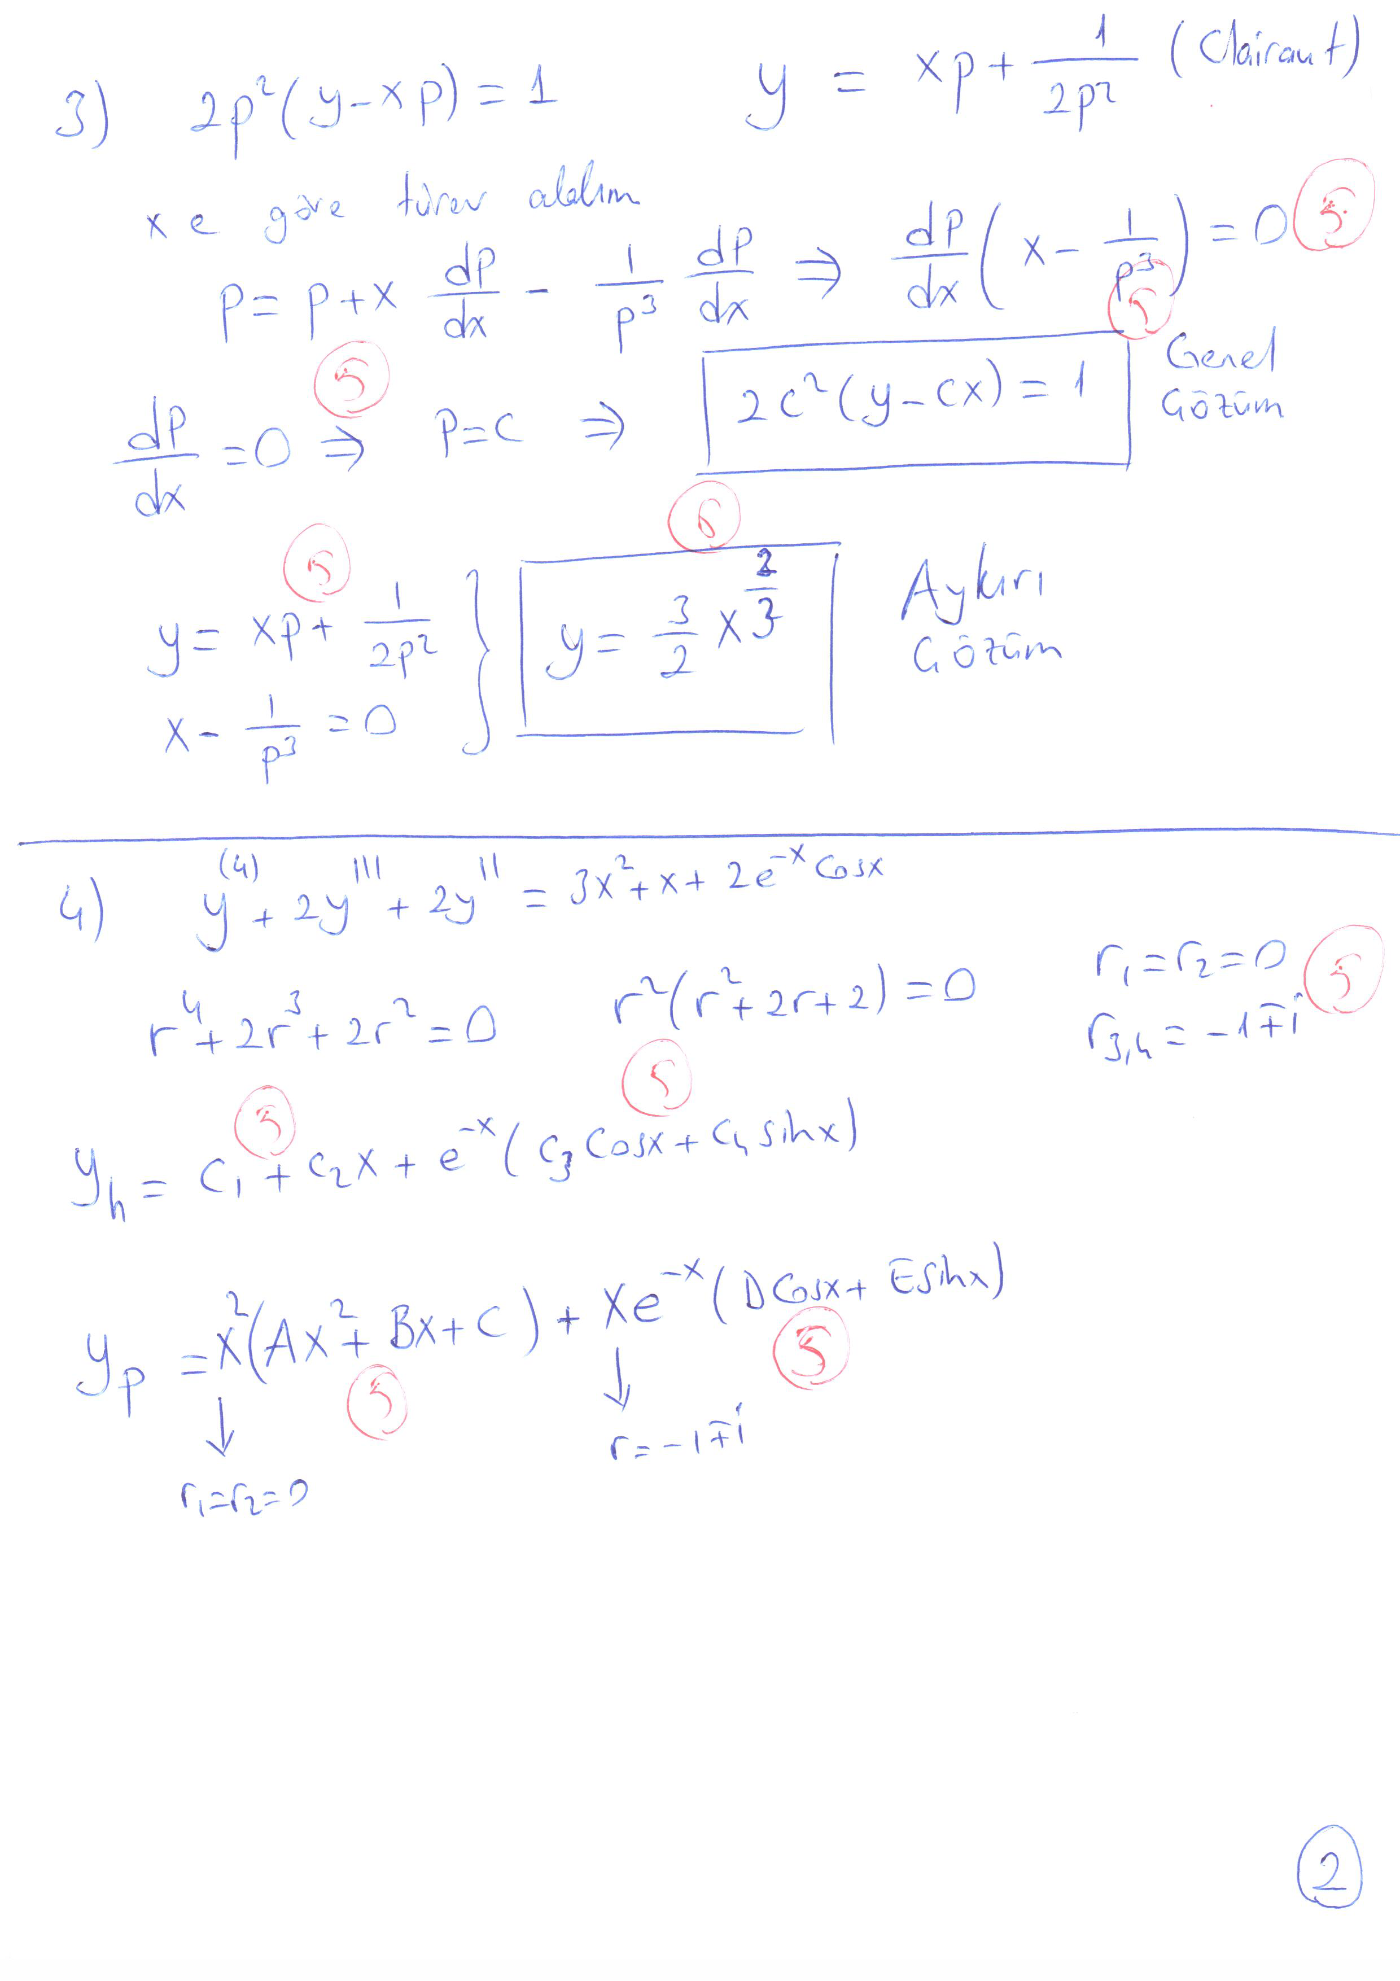 3) 2p²(y-xp) = 1 y = xp + 1/(2p²) (Clairaut)
x e göre türev alalım
p = p + x dp/dx - 1/p³ dp/dx ⇒ dp/dx (x - 1/p³) = 0 (5)
(5) (5)
dp/dx = 0 ⇒ p = c ⇒ 2c²(y-cx) = 1 Genel Çözüm
(5) (6)
y = xp + 1/(2p²) } y = 3/2 x^(2/3) Aykırı Çözüm
x - 1/p³ = 0
4) y⁽⁴⁾ + 2y''' + 2y'' = 3x² + x + 2e^(-x) Cosx
r⁴ + 2r³ + 2r² = 0 r²(r² + 2r + 2) = 0 r₁ = r₂ = 0 (5)
r₃,₄ = -1∓i
(5) (5)
y_h = c₁ + c₂x + e^(-x) (c₃ Cosx + c₄ sinx)
y_p = x²(Ax² + Bx + C) + xe^(-x) (D Cosx + E sinx)
(5) (5)
↓ ↓
r₁=r₂=0 r = -1∓i
2